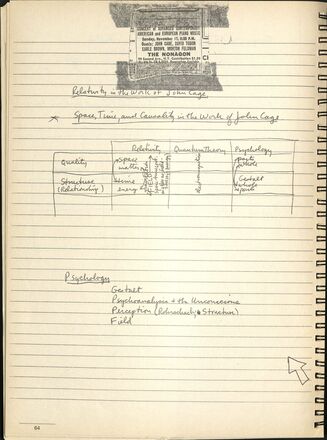 CONCERT OF ADVANCED CONTEMPORARY
AMERICAN and EUROPEAN PIANO MUSIC
Sunday, November 17, 8:30 P.M.
Guests: JOHN CAGE, DAVID TUDOR
EARLE BROWN, MORTON FELDMAN
THE NONAGON
Relativity in the Work of John Cage
* Space, Time, and Causality in the Work of John Cage
Relativity Quantum theory Psychology
Quality space matter parts whole
Structure (Relationship) time energy Gestalt whole parts
Psychology
Gestalt
Psychoanalysis + the Unconscious
Perception (Rohrschach, Structure)
Field
64